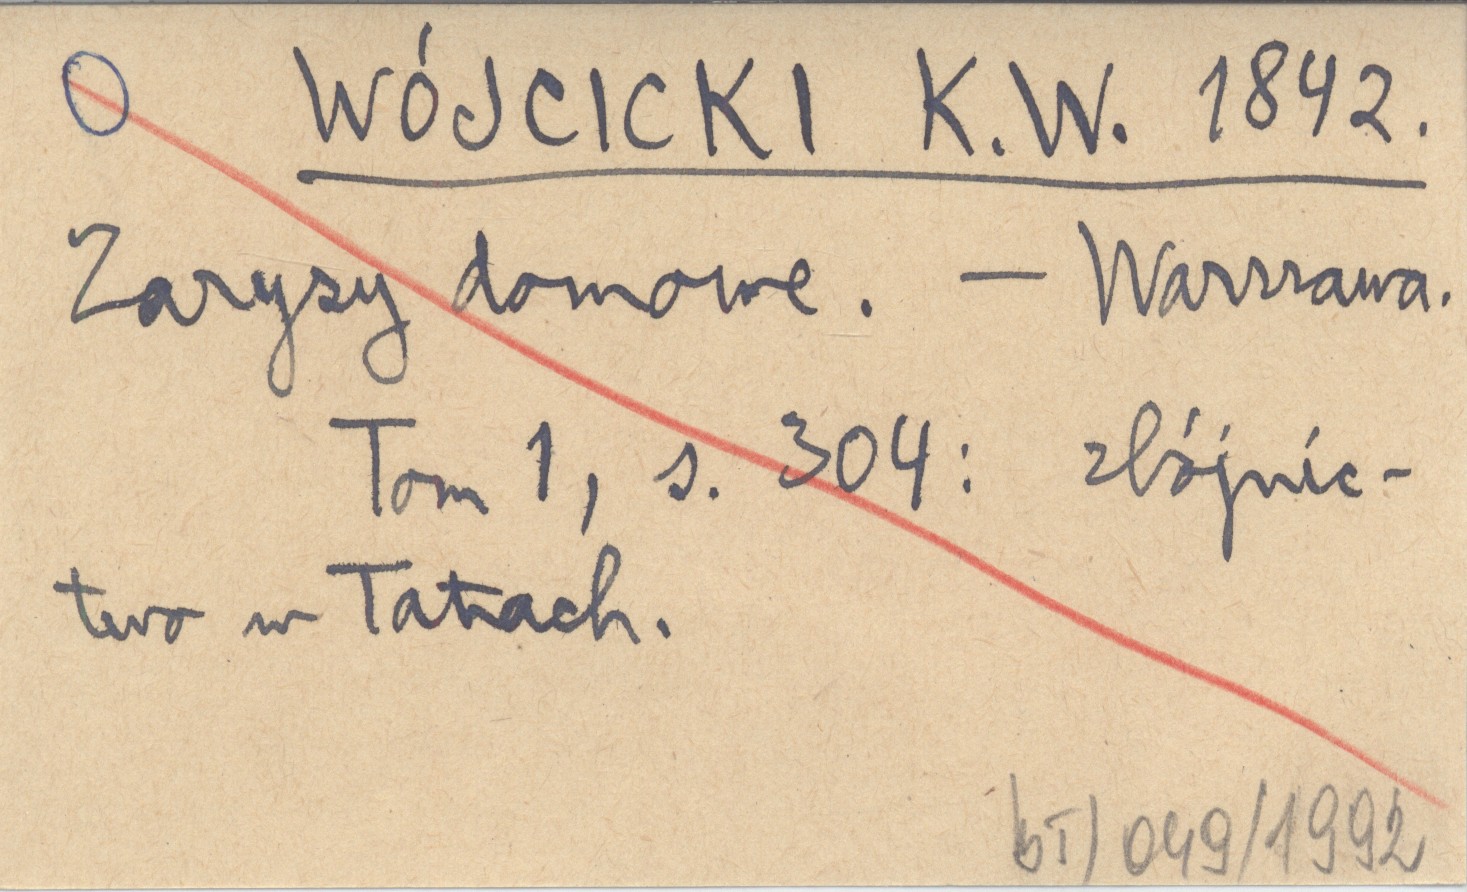 O WÓJCICKI K.W. 1842.
Zarysy domowe. — Warszawa.
Tom 1, s. 304: zbójnic-
two w Tatrach.
bT) 049/1992